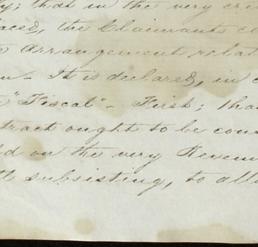 ; that in the very
, the Claimants
arrangement
It is declared, in
"Fiscal" - First; tha
tract ought to be
on the very Reven
subsisting, to all